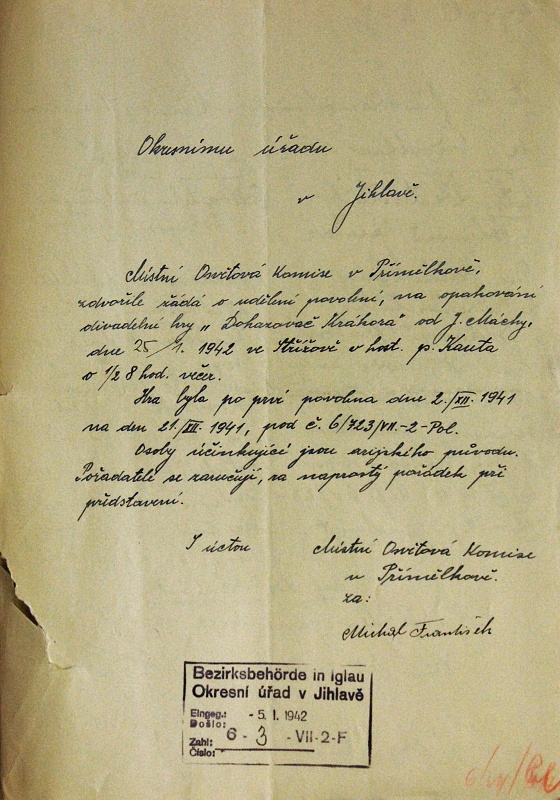 Okresnímu úřadu
v Jihlavě.
Místní Osvětová Komise v Přímělkově,
zdvořile žádá o udělení povolení, na opakování
divadelní hry „Doharovač Kráhora" od J. Máchy,
dne 25/1. 1942 ve Střížově v host. p. Kauta
o 1/2 8 hod. večer.
Hra byla po prvé povolena dne 2./XII. 1941
na den 21./XII. 1941, pod č. 6/723/VII.-2-Pol.
Osoby účinkující jsou arijského původu.
Pořadatelé se zaručují, za naprostý pořádek při
představení.
S úctou
Místní Osvětová Komise
v Přímělkově.
za:
Michal František
Bezirksbehörde in Iglau
Okresní úřad v Jihlavě
Eingeg.: - 5. I. 1942
Došlo:
Zahl: 6 - 3 - VII-2-F
Číslo: